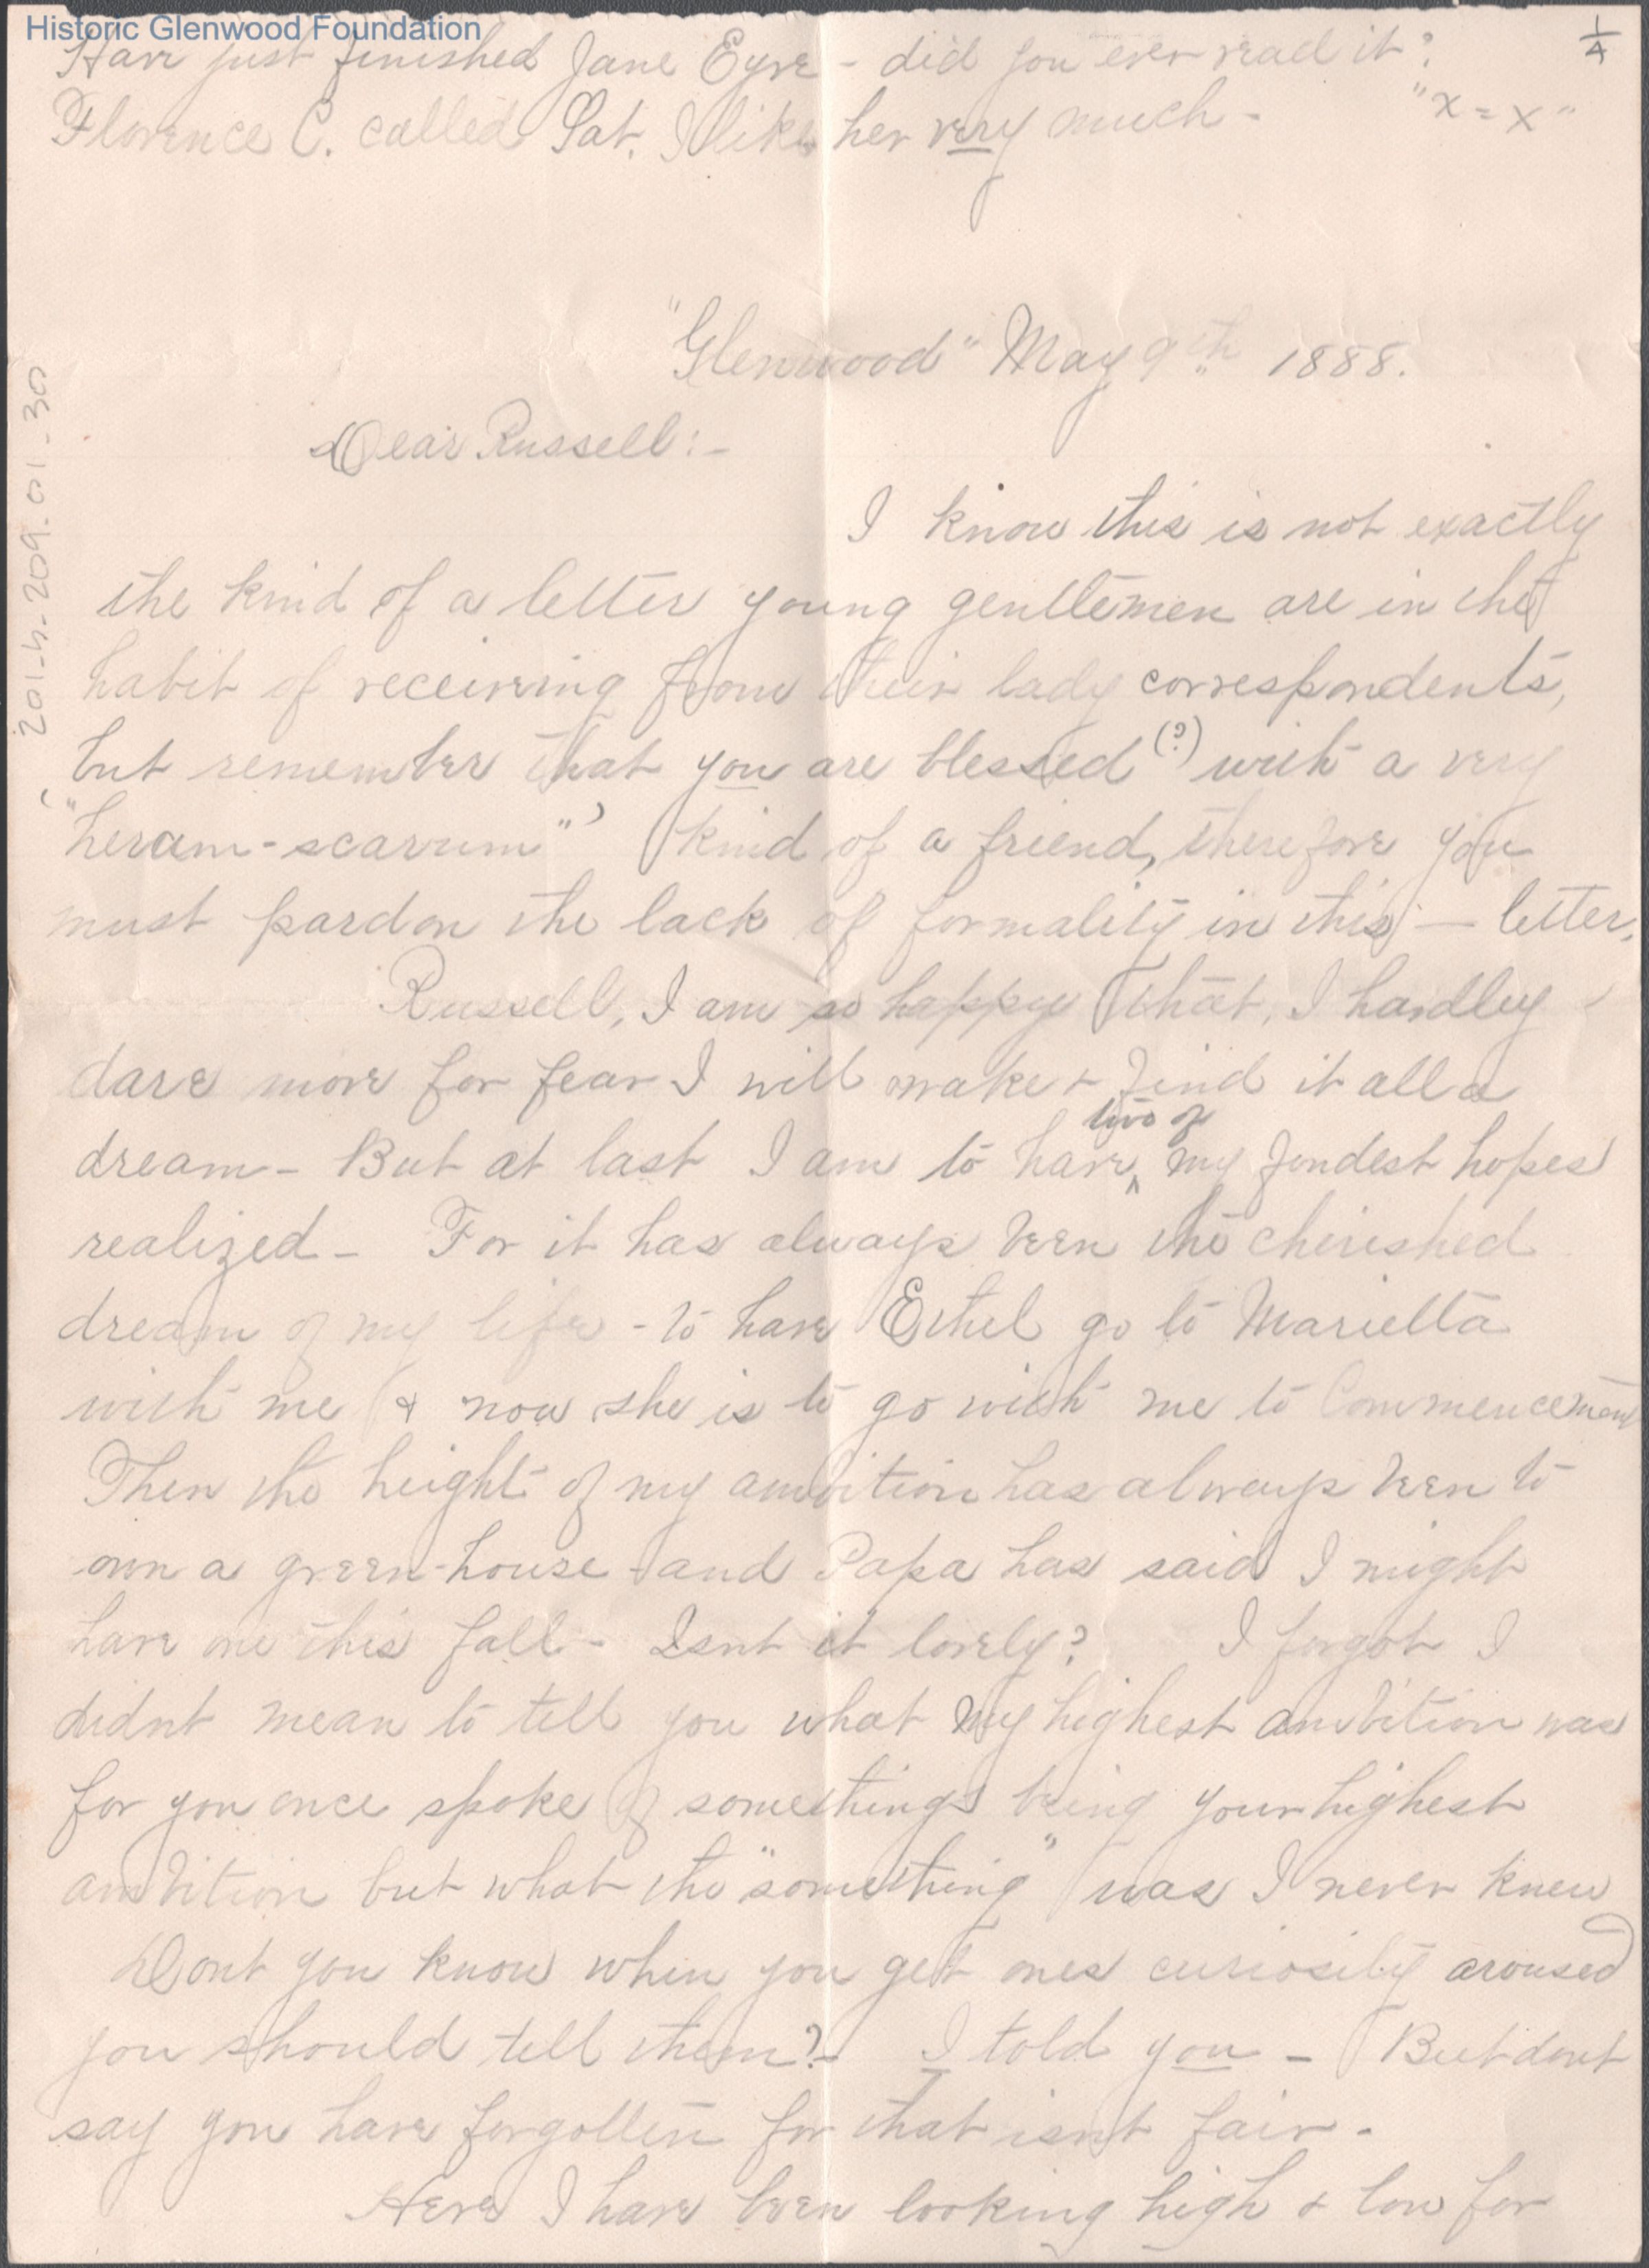 Historic Glenwood Foundation
1/4
Have just finished Jane Eyre - did you ever read it?
"x = x"
Florence C. called Sat. I like her very much -
"Glenwood" May 9th 1888.
201-h-209.01-30
Dear Russell:-
I know this is not exactly
the kind of a letter young gentlemen are in the
habit of receiving from their lady correspondents,
but remember that you are blessed (?) with a very
"heram-scarrum" kind of a friend, therefore you
must pardon the lack of formality in this — letter.
Russell, I am so happy that, I hardley
dare move for fear I will wake & find it all a
dream - But at last I am to have ^ two of my fondest hopes
realized - For it has always been the cherished
dream of my life - to have Ethel go to Marietta
with me & now she is to go with me to Commencement
Then the height of my ambition has always been to
own a green-house and Papa has said I might
have one this fall - Isnt it lovely? I forgot I
didnt mean to tell you what my highest ambition was
for you once spoke of something being your highest
ambition but what the "something" was I never knew
Dont you know when you get ones curiosity aroused
you should tell them? - I told you - But dont
say you have forgotten for that isnt fair -
Here I have been looking high & low for